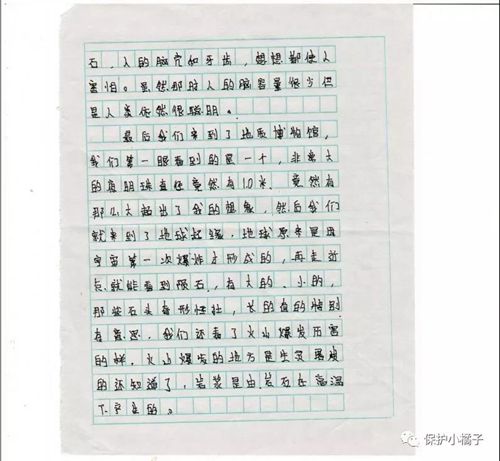 石,人的脑穴和牙齿,想想都使人
害怕。虽然那时人的脑容量很少但
是人类依然很聪明。
最后我们来到了地质博物馆,
我们第一眼看到的是一个,非常大
的直径竟然有10米。竟然有
那么大超出了我的想象,然后我们
就来到了地球起源。地球原来是由
宇宙第一次爆炸才形成的,再走近
点就能看到陨石,有大的、小的,
那些石头奇形怪状,长的真的特别
有意思,我们还看了火山爆发历害
的样,火山爆发的地方是
的还知道了,岩浆是由岩石在高温
下变的。
保护小橘子